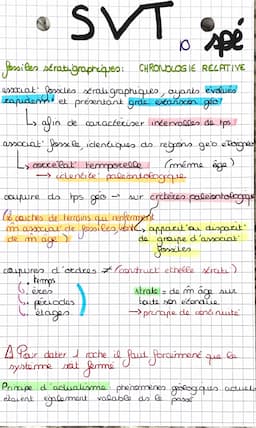 SVT spé
fossiles stratigraphiques: CHRONOLOGIE RELATIVE
associat° fossiles stratigraphiques, ayants évolués
rapidem^t et présentant grde extension géo
↳ afin de caractériser intervalles de tps
associat° fossile, identiques ds régions géo éloignées
↳ corrélat° temporelle (même âge)
→ identité paléontologique
coupure ds tps géo → sur critères paléontologique
(≠ couches de terrains qui renferment
m associat° de fossiles, sont
de m âge)
↳ apparit° ou disparit°
de groupe d'associat°
fossiles
coupures d'ordres ≠ (construct° échelle strati)
temps
ères
périodes
étages
strate = de m âge sur
toute son étendue
→ principe de continuité
⚠ Pour dater 1 roche il faut forcément que le
système soit fermé
Principe d'actualisme phénomènes géologiques actuels
étaient également valables ds le passé